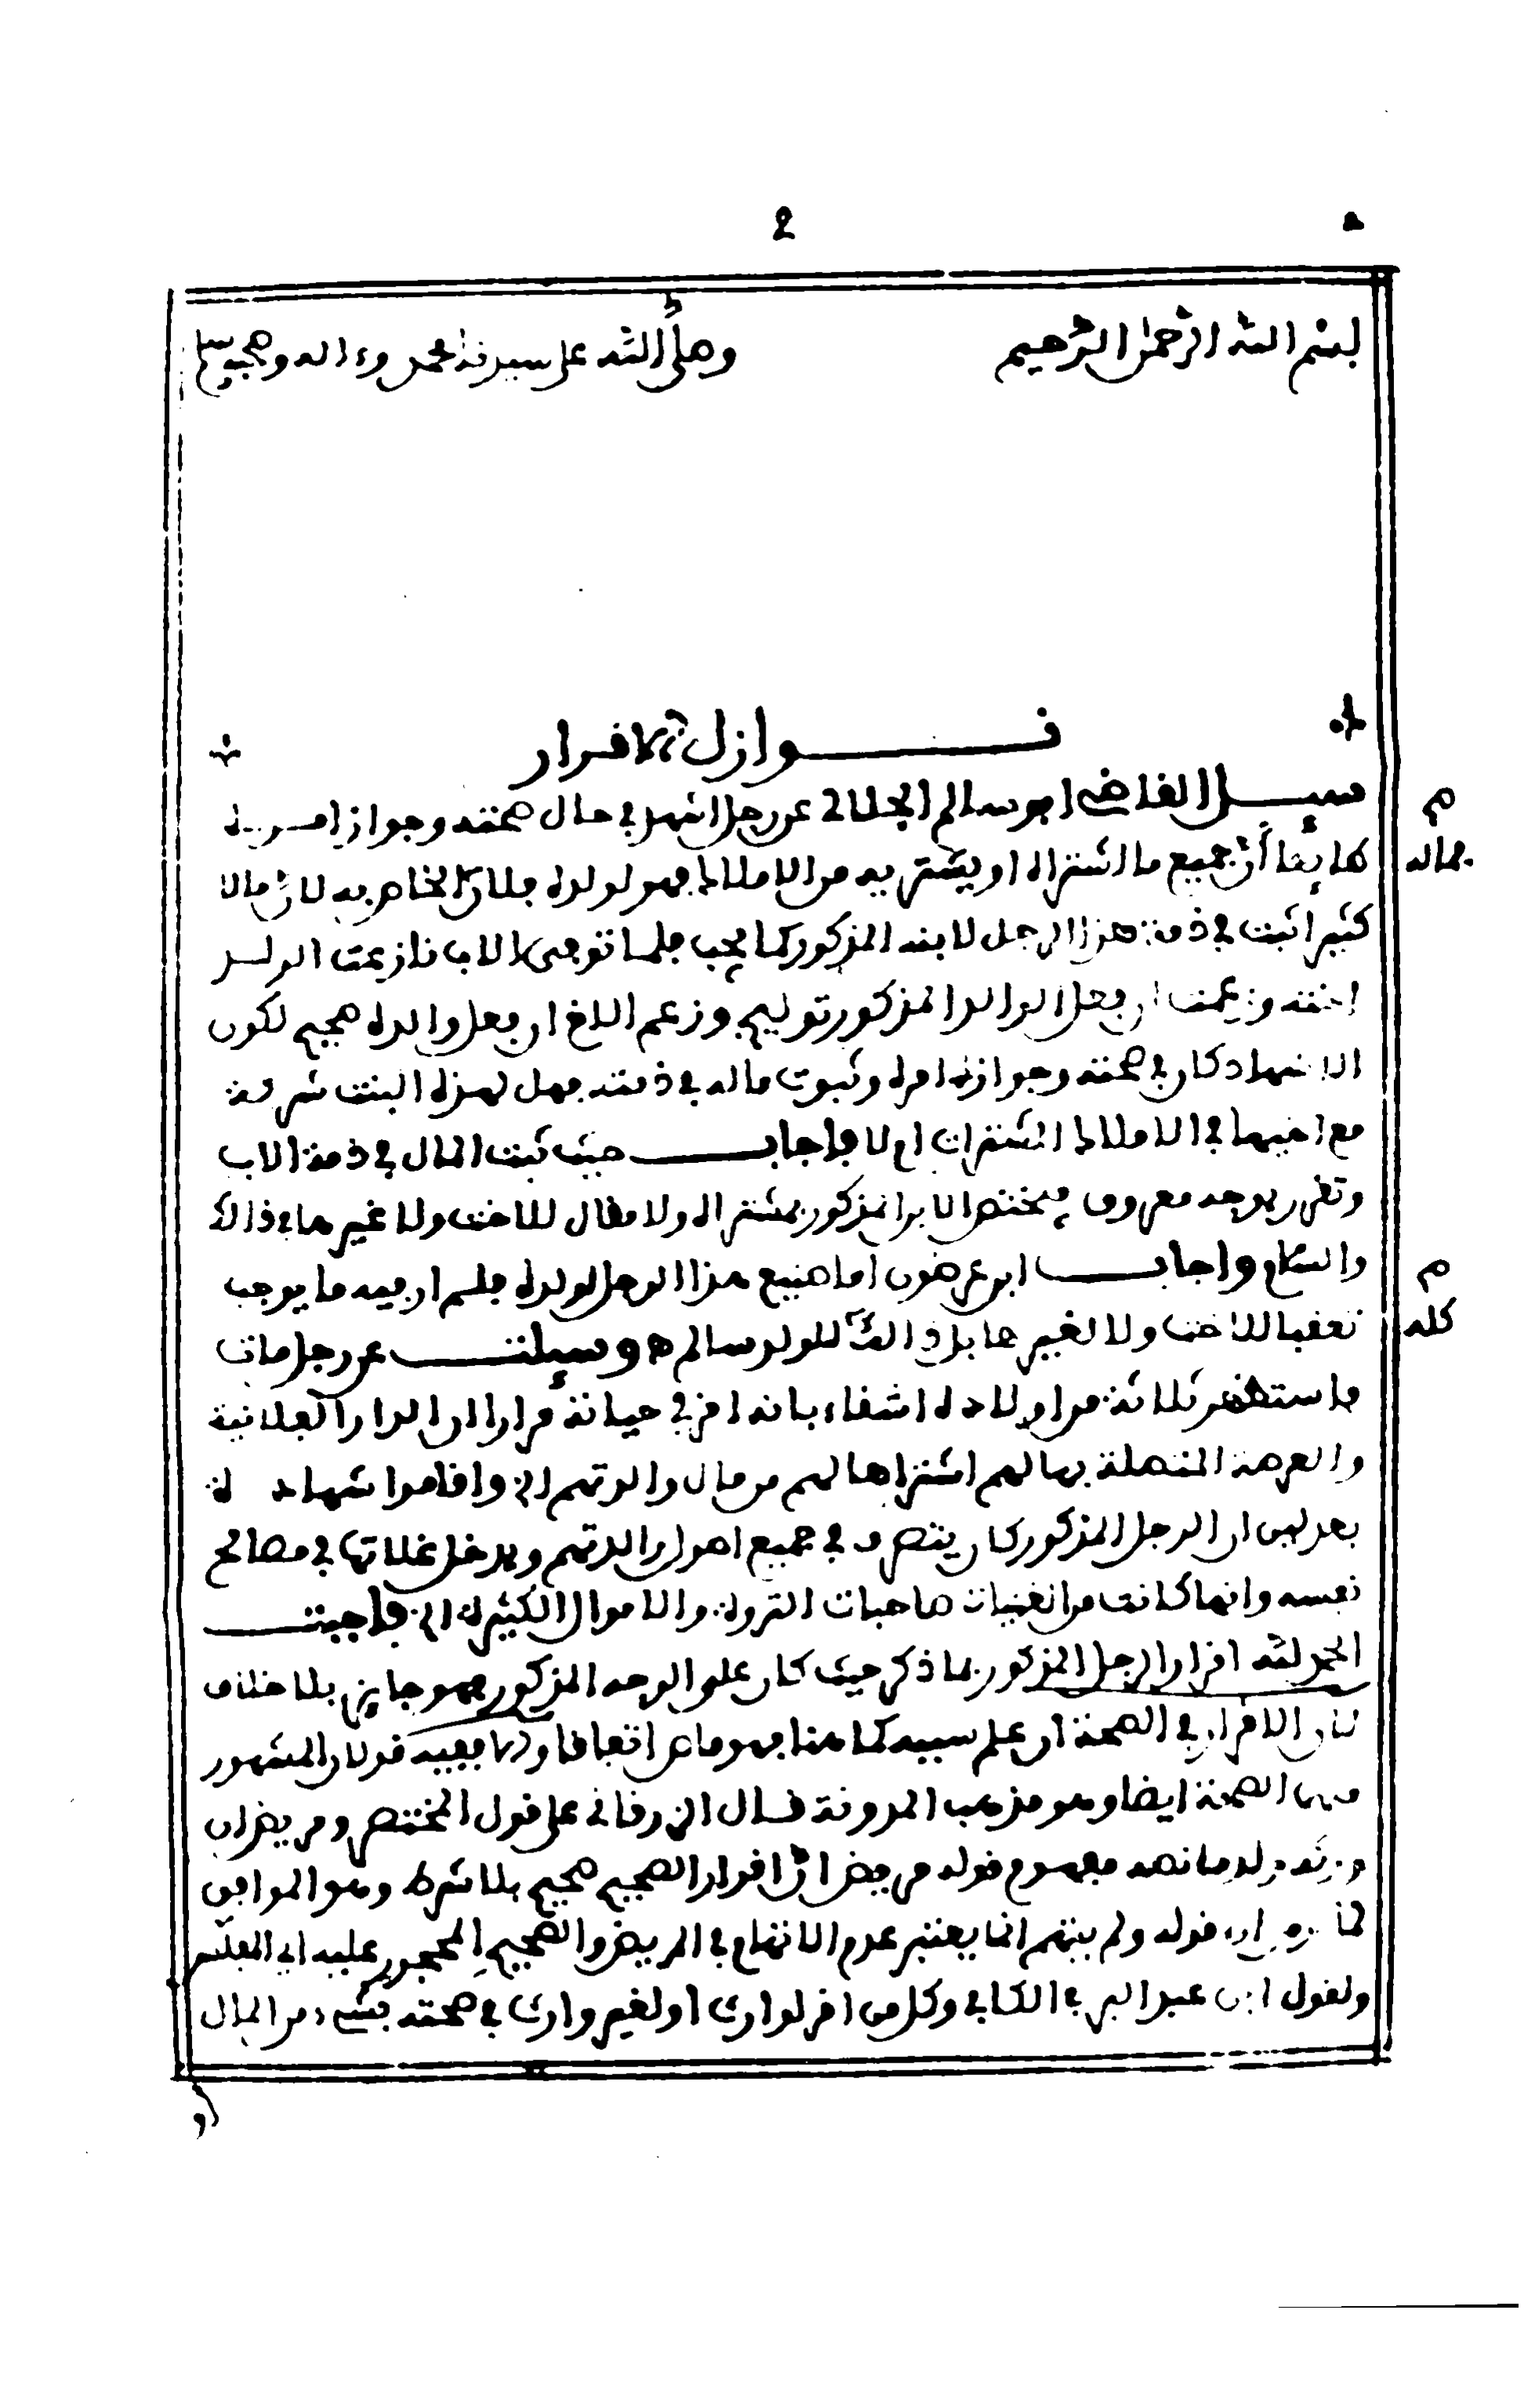 2
بسم الله الرحمن الرحيم وصلى الله على سيدنا محمد وءاله وصحبه
نوازل الاقرار
سئل القاضي ابو سالم الجلالي عن رجل اشهد في حال صحته وجواز امره
طائعا أن جميع ما اشتراه او يشتريه من الاملاك فهو لولده فلان بماله الخاص به لان مالا
كثيرا ثبت في ذمة هذا الرجل لابنه المذكور كما يجب فلما توفى الاب نازعت الولد
اخته وزعمت ان فعل الوالد المذكور توليج وزعم الاخ ان فعل والده صحيح لكون
الاشهاد كان في صحته وجواز امره وثبوت ماله في ذمته فهل لهذه البنت شركة
مع اخيها في الاملاك المشترات ام لا فاجاب حيث ثبت المال في ذمة الاب
وتقرر بوجه معروف فيختص الابن المذكور بمشتراه ولا مقال للاخت ولا غيرها في ذالك
والسلام واجاب ابن عرضون اما صنيع هذا الرجل لولده فلم ار فيه ما يوجب
تعقبا للاخت ولا لغيرها بل ذالك كله للولد سالم ه وسئلت عن رجل مات
فاستظهر ثلاثة من اولاده اشقاء بانه اقر في حياته قرارا ان الدار العلانية
والعرصة المتصلة بها لهم اشتراها لهم من مال والدتهم الخ واقاموا شهادة
بعدلين ان الرجل المذكور كان يتصرف في جميع اموال والدتهم ويدخل غلاتها في مصالح
نفسه وانها كانت من الغنيات صاحبات الثروة والاموال الكثيرة الخ فاجبت
الحمد لله اقرار الرجل المذكور بما ذكر حيث كان على الوجه المذكور فهو جايز بلا خلاف
لان الاقرار في الصحة ان علم سببه كما هنا فهو ماض اتفاقا والا ففيه قولان المشهور
منهما الصحة ايضا وهو مذهب المدونة قال الزرقاني على قول المختصر ومريض ان
ورثه ولد ما نصه مفهوم قوله مريض ان اقرار الصحيح صحيح بلا شرط وهو الموافق
قوله ولم يتهم انما يعتبر عدم الاتهام في المريض والصحيح المحجور عليه اي المفلس
ولقول ابن عبد البر في الكافي وكل من اقر لوارث او لغير وارث في صحته بشيء من المال
م
بماله
م
كله
او